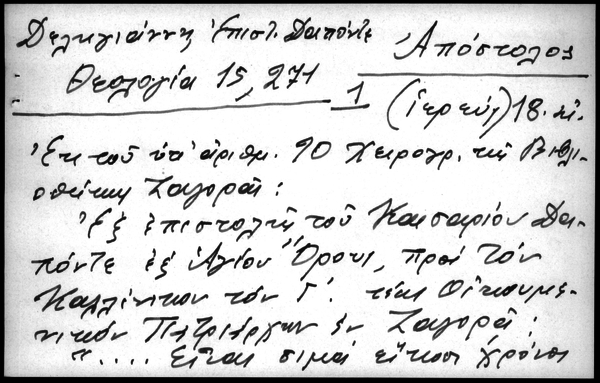 Δεληγιάννη Ἐπιστ. Δαπόντε
Ἀπόστολος
Θεολογία 15, 271
1
(ἱερεύς) 18. αἰ.
Ἐκ τοῦ ὑπ' ἀριθμ. 90 Χειρογρ. τῆς Βιβλι-
οθήκης Ζαγορᾶς:
Ἐξ ἐπιστολῆς τοῦ Καισαρίου Δα-
πόντε ἐξ Ἁγίου Ὄρους, πρός τόν
Καλλίνικον τόν Γ΄. τέως Οἰκουμε-
νικόν Πατριάρχην ἐν Ζαγορᾷ:
".... εἶναι σιμά εἴκοσι χρόνοι